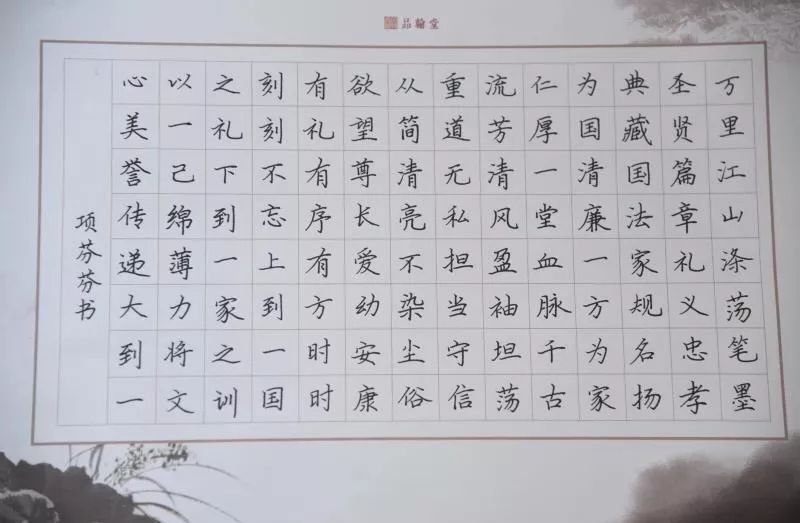 品翰堂
万里江山涤荡笔墨
圣贤篇章礼义忠孝
典藏国法家规名扬
为国清廉一方为家
仁厚一堂血脉千古
流芳清风盈袖坦荡
重道无私担当守信
从简清亮不染尘俗
欲望尊长爱幼安康
有礼有序有方时时
刻刻不忘上到一国
之礼下到一家之训
以一己绵薄力将文
心美誉传递大到一
项芬芬书